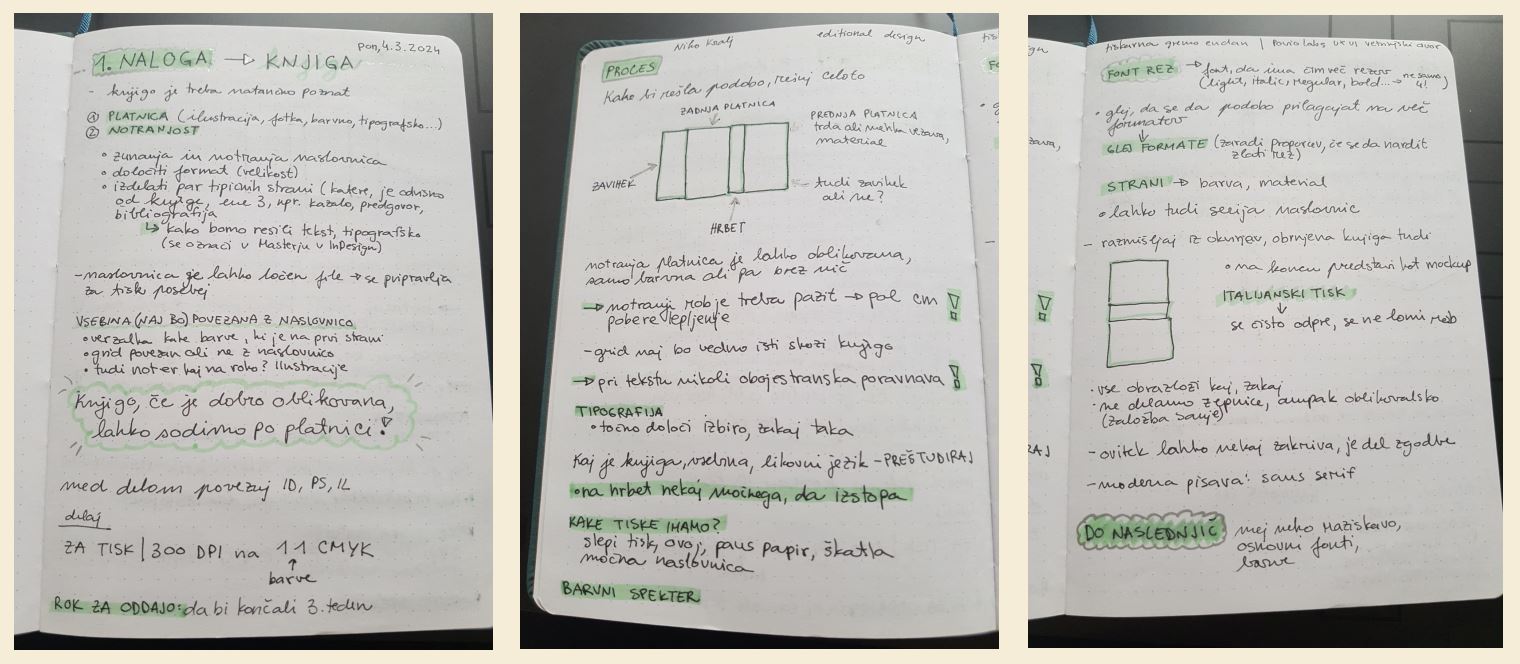 Pon, 4.3.2024
1. NALOGA → KNJIGA
- knjigo je treba natančno poznat
① PLATNICA (ilustracija, fotka, barvno, tipografsko...)
② NOTRANJOST
• zunanja in notranja naslovnica
• določiti format (velikost)
• izdelati par tipičnih strani (katere, je odvisno
od knjige, ene 3, npr. kazalo, predgovor,
bibliografija
↳ kako bomo rešili tekst, tipografsko
(se označi v Masterju v InDesign)
- naslovnica je lahko ločen file → se pripravlja
za tisk posebej
VSEBINA (NAJ BO) POVEZANA Z NASLOVNICO
• verzalka kake barve, ki je na prvi strani
• grid povezan ali ne z naslovnico
• tudi noter kaj na roko? Ilustracije
Knjigo, če je dobro oblikovana,
lahko sodimo po platnici!
med delom povezuj ID, PS, IL
delaj
ZA TISK | 300 DPI na 1:1 CMYK
↑
barve
ROK ZA ODDAJO: da bi končali 3. teden
Niko Kralj editional design
PROCES
Kako bi rešla podobo, reinj celoto
ZADNJA PLATNICA
PREDNJA PLATNICA
trda ali mehka vezava,
material
ZAVIHEK
- tudi zavihek
ali ne?
HRBET
notranja platnica je lahko oblikovana,
samo barvna ali pa brez nič
→ notranji rob je treba pazit → pol cm !
pobere lepljenje
- grid naj bo vedno isti skozi knjigo
→ pri tekstu nikoli obojestranska poravnava !
TIPOGRAFIJA
• točno določi izbiro, zakaj taka
Kaj je knjiga, vsebina, likovni jezik - PREŠTUDIRAJ
• na hrbet nekaj močnega, da izstopa
KAKE TISKE IMAMO?
slepi tisk, ovoj, paus papir, škatla
močna naslovnica
BARVNI SPEKTER
tiskarna gremo en dan | Povio labs
FONT REZ → font, da ima čim več rezov
(light, italic, regular, bold... → ne samo
4!)
• glej, da se da podobo prilagajat na več
formatov
↓
GLEJ FORMATE (zaradi proporcev, če se da nardit
zlati rez)
STRANI → barva, material
• lahko tudi serija naslovnic
- razmišljaj iz okvirjev, obrnjena knjiga tudi
• na koncu predstavi kot mockup
ITALIJANSKI TISK
↓
se čisto odpre, se ne lomi rob
• vse obrazloži kaj, zakaj
• ne delamo žepnice, ampak oblikovalsko
(založba Sanje)
- ovitek lahko nekaj zakriva, je del zgodbe
- moderna pisava: sans serif
DO NASLEDNJIČ mej neko raziskavo,
osnovni fonti,
barve